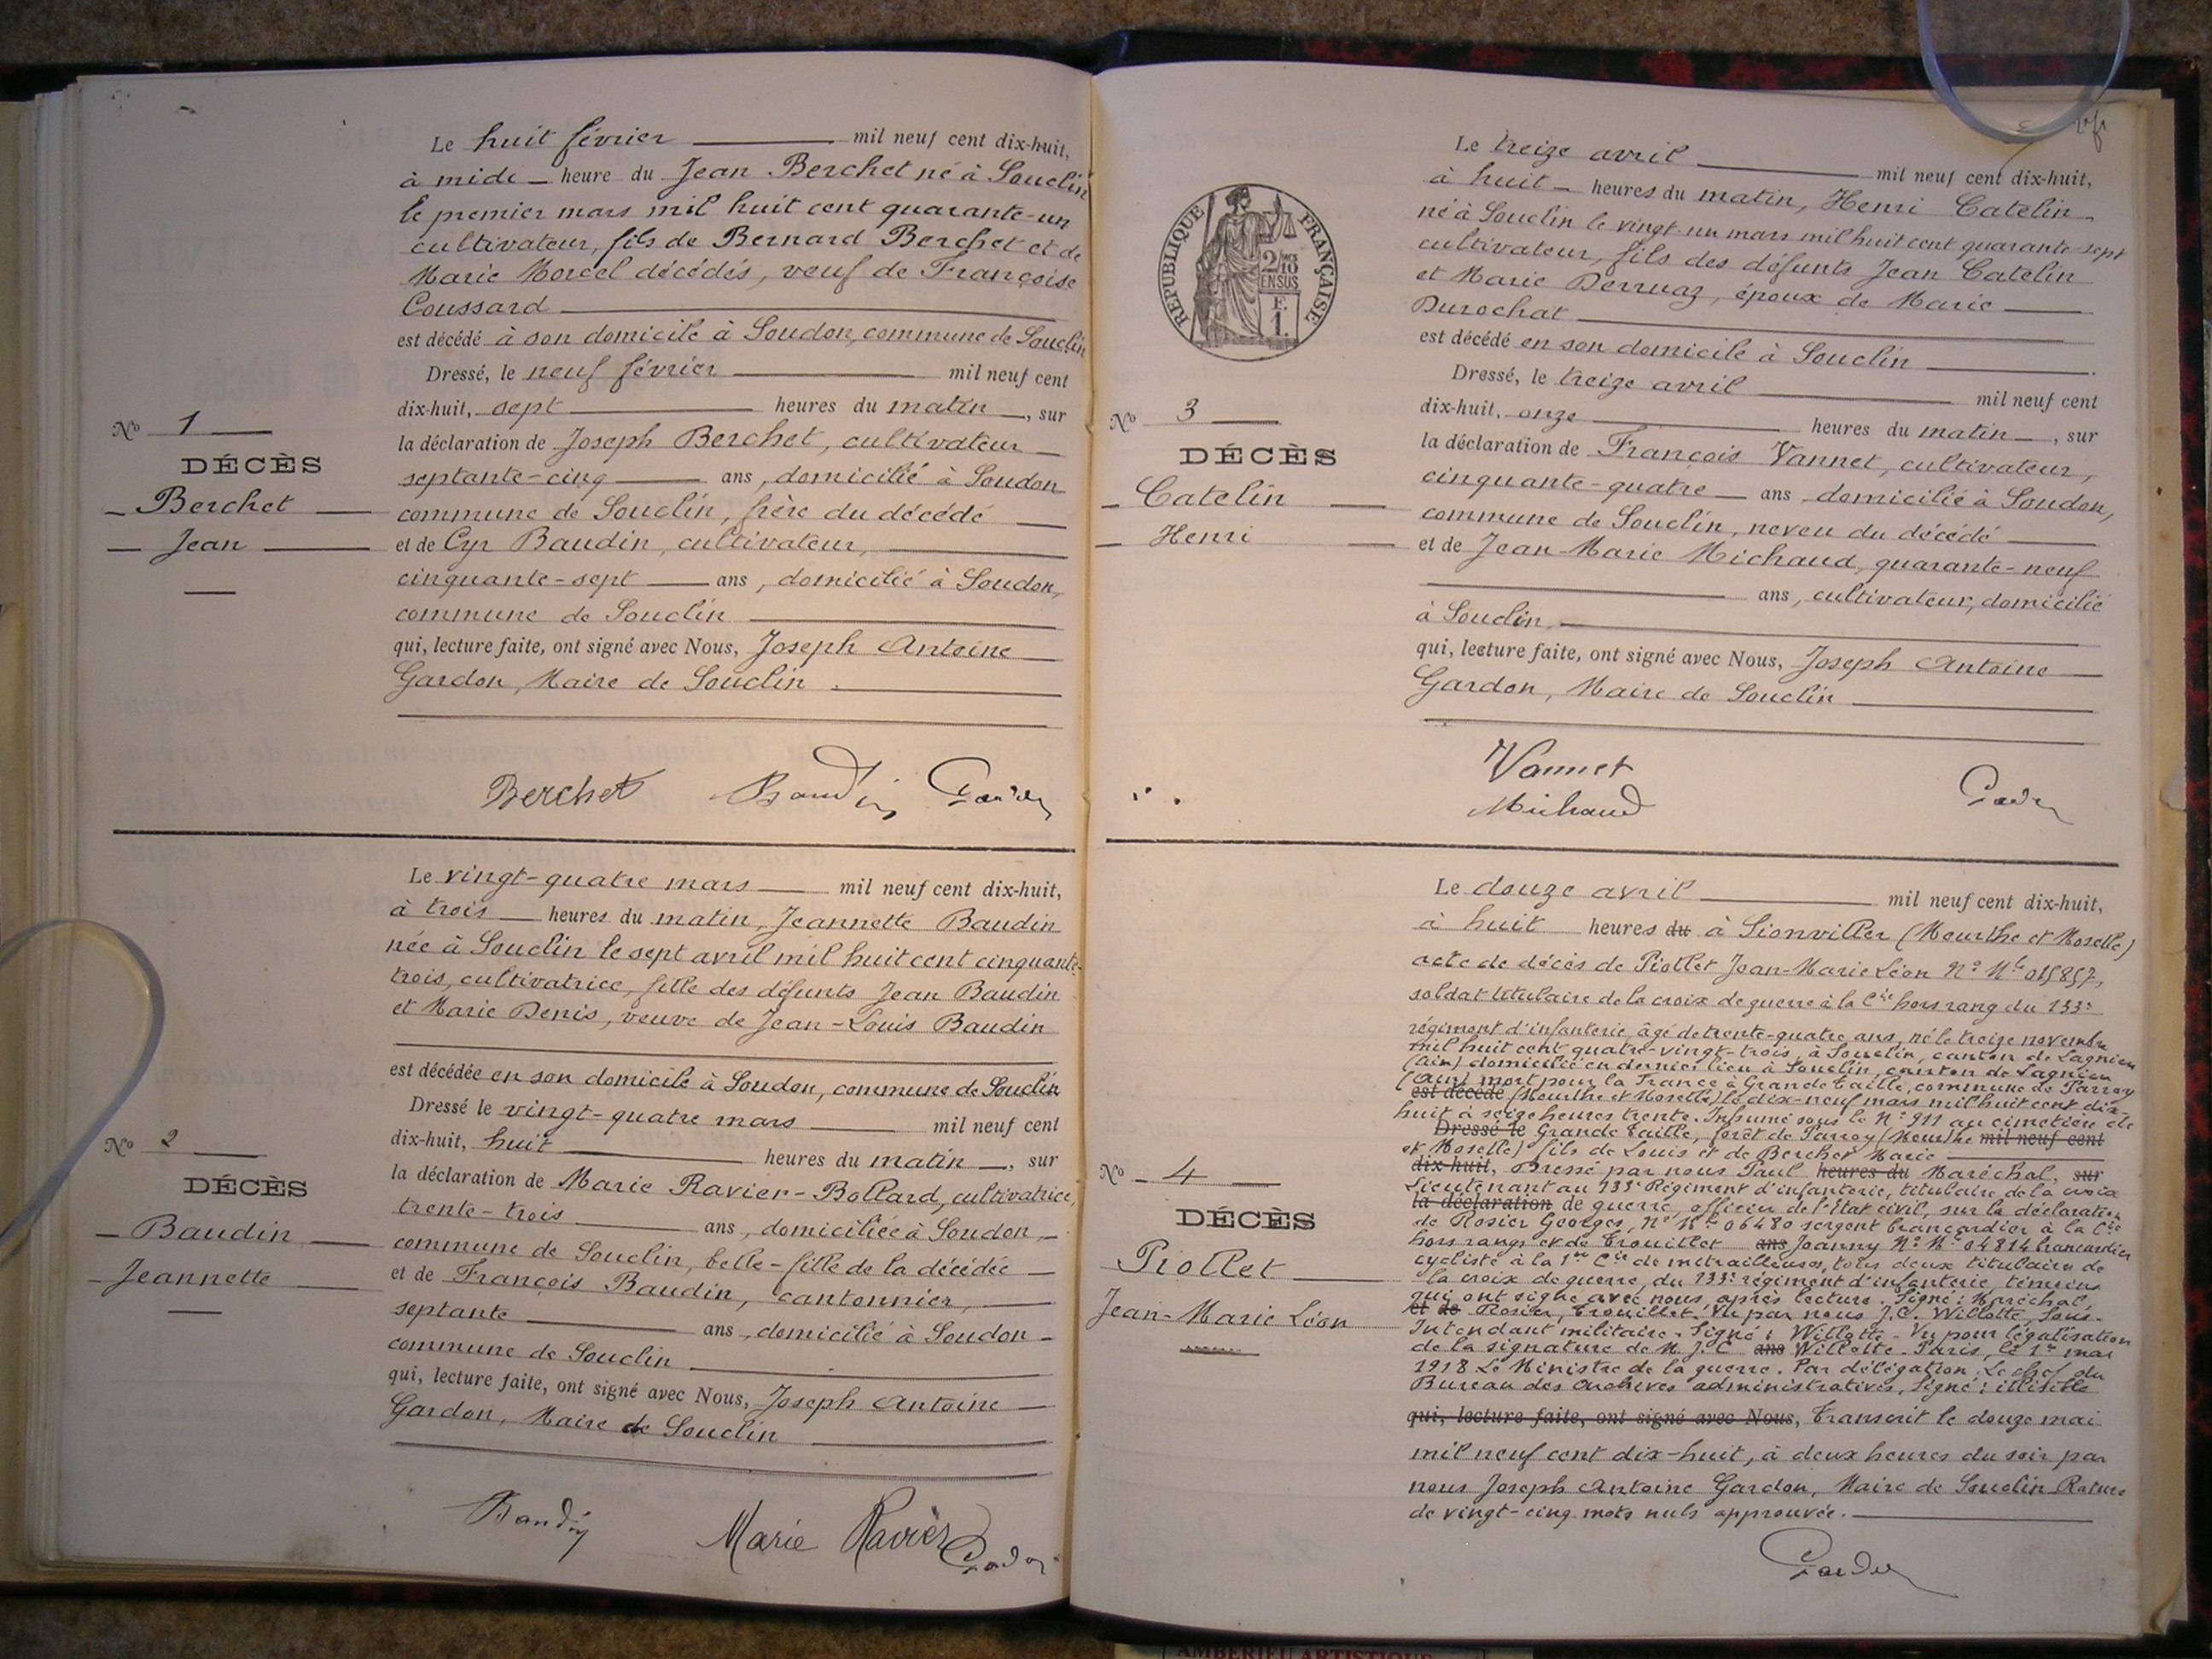 Le huit février mil neuf cent dix-huit,
à midi heure du Jean Berchet né à Souclin
le premier mars mil huit cent quarante-un
cultivateur, fils de Bernard Berchet et de
Marie Morcel décédés, veuf de Françoise
Coussard
est décédé à son domicile à Soudon, commune de Souclin
Dressé, le neuf février mil neuf cent
dix-huit, sept heures du matin, sur
la déclaration de Joseph Berchet, cultivateur
septante-cinq ans, domicilié à Soudon
commune de Souclin, frère du décédé
et de Cyr Baudin, cultivateur,
cinquante-sept ans, domicilié à Soudon,
commune de Souclin
qui, lecture faite, ont signé avec Nous, Joseph Antoine
Gardon, Maire de Souclin.
Nº 1
DÉCÈS
Berchet
Jean
Berchet Baudin Gardon
Le vingt-quatre mars mil neuf cent dix-huit,
à trois heures du matin, Jeannette Baudin
née à Souclin le sept avril mil huit cent cinquante-
trois, cultivatrice, fille des défunts Jean Baudin
et Marie Denis, veuve de Jean-Louis Baudin
est décédée en son domicile à Soudon, commune de Souclin
Dressé le vingt-quatre mars mil neuf cent
dix-huit, huit heures du matin, sur
la déclaration de Marie Ravier-Bollard, cultivatrice,
trente-trois ans, domiciliée à Soudon,
commune de Souclin, belle-fille de la décédée
et de François Baudin, cantonnier,
septante ans, domicilié à Soudon
commune de Souclin
qui, lecture faite, ont signé avec Nous, Joseph Antoine
Gardon, Maire de Souclin
Nº 2
DÉCÈS
Baudin
Jeannette
Baudin Marie Ravier Gardon
RÉPUBLIQUE FRANÇAISE
2/10 EN SUS
E.
1.
Le treize avril mil neuf cent dix-huit,
à huit heures du matin, Henri Catelin
né à Souclin le vingt-un mars mil huit cent quarante-sept
cultivateur, fils des défunts Jean Catelin
et Marie Derruaz, époux de Marie
Durochat
est décédé en son domicile à Souclin
Dressé, le treize avril mil neuf cent
dix-huit, onze heures du matin, sur
la déclaration de François Vannet, cultivateur,
cinquante-quatre ans domicilié à Soudon,
commune de Souclin, neveu du décédé
et de Jean-Marie Michaud, quarante-neuf
ans, cultivateur, domicilié
à Souclin,
qui, lecture faite, ont signé avec Nous, Joseph Antoine
Gardon, Maire de Souclin
Nº 3
DÉCÈS
Catelin
Henri
Vannet
Michaud Gardon
Le douze avril mil neuf cent dix-huit,
à huit heures du à Sionviller (Meurthe et Moselle)
acte de décès de Piollet Jean-Marie Léon Nº Mle 015857,
soldat titulaire de la croix de guerre à la Cie hors rang du 133e
régiment d'infanterie, âgé de trente-quatre ans, né le treize novembre
mil huit cent quatre-vingt-trois, à Souclin, canton de Lagnieu
(Ain) domicilié en dernier lieu à Souclin, canton de Lagnieu
(Ain) mort pour la France à Grande Taille, commune de Parroy
est décédé (Meurthe et Moselle) le dix-neuf mars mil huit cent dix-
huit à seize heures trente. Inhumé sous le Nº 911 au cimetière de
Dressé le Grande Taille, forêt de Parroy (Meurthe mil neuf cent
et Moselle) fils de Louis et de Berchet Marie
dix-huit, Dressé par nous Paul heures du Maréchal, sur
Lieutenant au 133e Régiment d'infanterie, titulaire de la croix
la déclaration de guerre, officier de l'état civil, sur la déclaration
de Rosier Georges, Nº Mle 06480 sergent brancardier à la Cie
hors rangs et de Trouillet ans Joanny Nº Mle 04814 brancardier
cycliste à la 1re Cie de mitrailleuses, tous deux titulaires de
la croix de guerre, du 133e régiment d'infanterie, témoins
qui ont signé avec nous après lecture. Signé: Maréchal,
et de Rosier, Trouillet. Vu par nous J.C. Willotte, Sous-
Intendant militaire. Signé: Willotte - Vu pour légalisation
de la signature de M. J.C. ans Willotte. Paris, le 1er mai
1918 Le Ministre de la guerre. Par délégation, Le chef du
Bureau des Archives administratives, Signé: illisible
qui, lecture faite, ont signé avec Nous, Transcrit le douze mai
mil neuf cent dix-huit, à deux heures du soir par
nous Joseph Antoine Gardon, Maire de Souclin Rature
de vingt-cinq mots nuls approuvée.
Nº 4
DÉCÈS
Piollet
Jean-Marie Léon
Gardon
AMBERIEU ARTISTIQUE